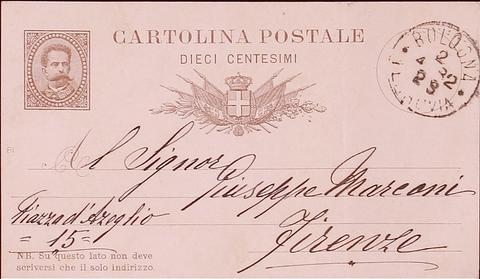 CARTOLINA POSTALE
DIECI CENTESIMI
BOLOGNA
2
4 82
2S
FERROVIA
Al Signor
Giuseppe Marconi
Piazza d'Azeglio
= 15 =
Firenze
NB. Su questo lato non deve
scriversi che il solo indirizzo.